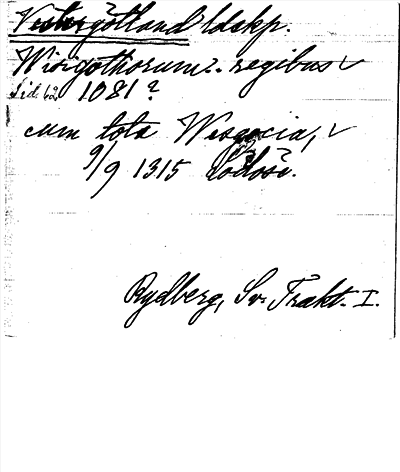 Västergötland ldskp.
Wisigothorum.. regibus √
Sid. 62 1081?
cum tota Wesgocia, √
9/9 1315 Lödöse.
Rydberg, Sv. Trakt. I.